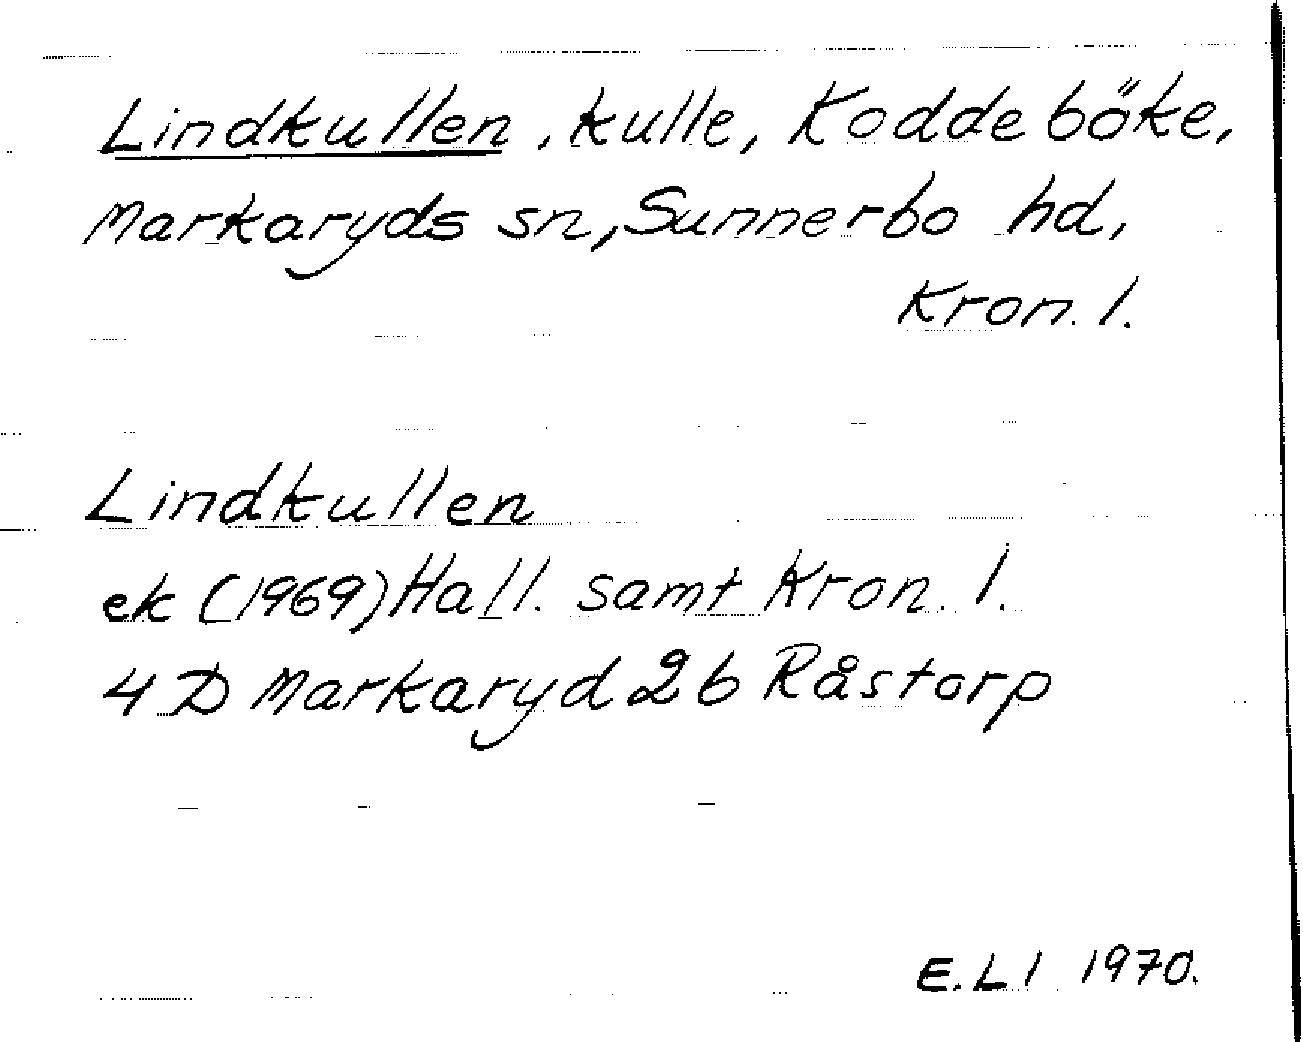 Lindkullen, kulle, Koddeböke,
Markaryds sn, Sunnerbo hd,
Kron. l.
Lindkullen
ek (1969) Hall. samt Kron. l.
4 D Markaryd 2b Råstorp
E. L l 1970.